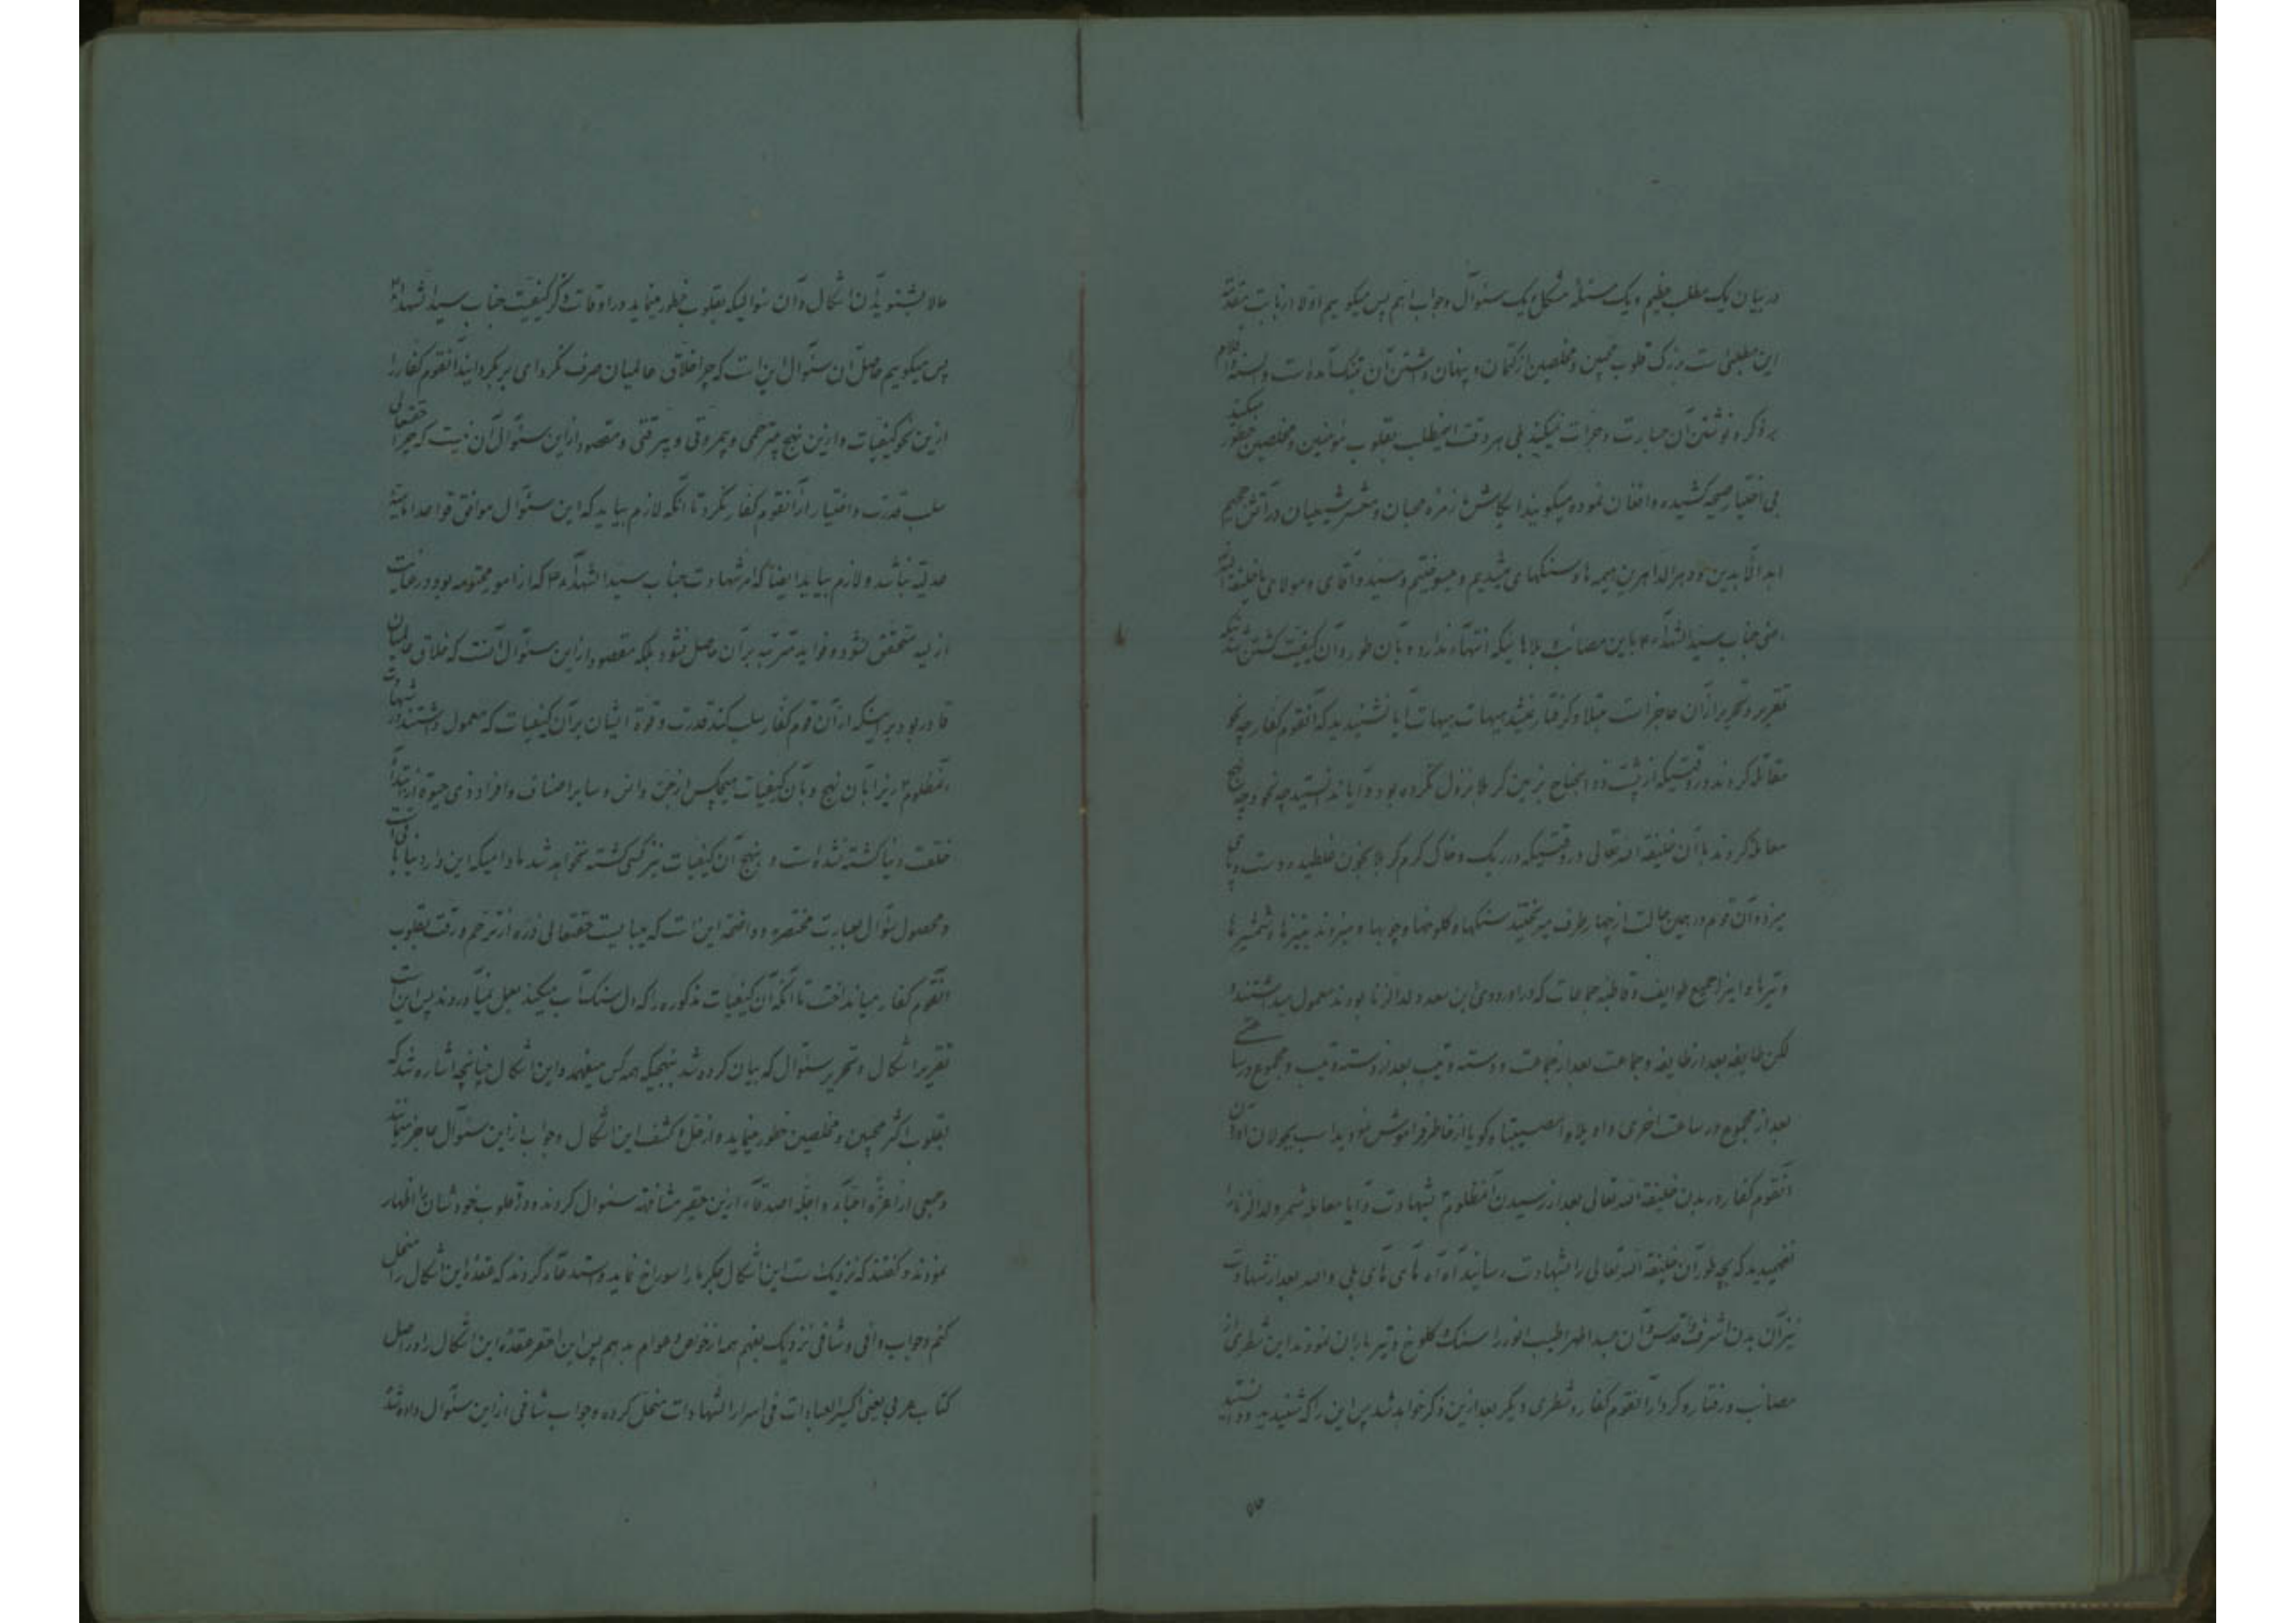 در بیان یک مطلب عظیم و یک مسئله مشکل و یک سئوال و جواب اهم پس میکوییم اولا از بابت مقدمه
این مطلبی است بزرک قلوب محبین و مخلصین از کتمان و پنهان داشتن آن بتنک آمده است و السنه و اقلام
بر ذکر و نوشتن آن جسارت و جرات نمیکند بلی هر وقت اینمطلب بقلوب مؤمنین و مخلصین خطور میکند
بی اختیار صیحه کشیده و افغان نموده میکویند ایکاش از زمره محبان و معشر شیعیان در آتش جحیم
ابد الآبدین و دهر الداهرین هیمه ها و سنکهای میشدیم و میسوختیم و سید و آقای و مولای ما خلیفة الله
اعنی جناب سید الشهدآء ٤ باین مصائب و بلاها ئیکه انتهآء ندارد و بان طور و آن کیفیت کشتن شدنیکه
تقریر و تحریر از آن عاجز است مبتلا و کرفتار نمیشد هیهات هیهات آیا نشنیدید که آنقوم کفار چه نحو
مقاتله کردند در وقتیکه از پشت ذو الجناح بزمین کربلا نزول نکرده بود و آیا ندانستید چه نحو و چه نهج
معامله کردند با آن خلیفة الله تعالی در وقتیکه در ریک و خاک کرم کربلا بخون غلطیده دست و پای
میزد و آن قوم در همین حالت از چهار طرف میریختند سنکها و کلوخها و چوبها و میزدند نیزها و شمشیرها
و تیرها و اینرا جمیع طوایف و قاطبه جماعات که در اردوی ابن سعد ولد الزنا بودند معمول میداشتند و
لکن طایفه بعد از طایفه و جماعت بعد از جماعت و دسته و تیپ بعد از دسته و تیپ و مجموع در ساعتی
بعد از مجموع در ساعت اخری واویلا وا مصیبتا و کویا از خاطر فراموش نمودید اسب بجولان آوردن
آنقوم کفار در بدن خلیفة الله تعالی بعد از رسیدن آنمظلوم بشهادت و آیا معامله شمر ولد الزنا را
نفهمیدید که بچه طور آن خلیفة الله تعالی را بشهادت رسانید آه آه های های بلی والله بعد از شهادت
نیز آن بدن اشرف اقدس و آن جسد اطهر اطیب انور را سنک و کلوخ و تیر باران نمودند این شطری از
مصائب و رفتار و کردار آنقوم کفار و شطری دیکر بعد ازین ذکر خواهد شد پس این را که شنیدید و دانستید
حالا
حالا بشنوید آن اشکال و آن سئوالیکه بقلوب خطور مینماید در اوقات ذکر کیفیت جناب سید الشهدآء
پس میکوییم حاصل آن سئوال این است که چرا خلاق عالمیان صرف نکرد ای بر نکردانید آنقوم کفار را
ازین نحو کیفیات و ازین نهج بیترحمی و بیمروتی و بیرقتی و مقصود از این سئوآل آن نیست که چرا حقتعالی
سلب قدرت و اختیار از آنقوم کفار نکرد تا آنکه لازم بیاید که این سئوآل موافق قواعد امامیه
عدلیه نباشد و لازم بیاید ایضا که امر شهادت جناب سید الشهدآء ٤ که از امور محتومه بود و در عنایت
ازلیه متحقق نشود و فواید مترتبه بر آن حاصل نشود بلکه مقصود از این سئوآل آنست که خلاق عالمیان
قادر بود بر اینکه از آن قوم کفار سلب کند قدرت و قوة ایشان بر آن کیفیات که معمول داشتند در شهادت
آنمظلوم زیرا بان نهج و بان کیفیات هیچکس از جن و انس و سایر اصناف و افراد ذی حیوة از ابتدآء
خلقت دنیا کشته نشده است و بنهج آن کیفیات نیز کسی کشته نخواهد شد مادامیکه این دار دنیا باقی است
و محصول سئوال بعبارت مختصره و واضحه این است که میبایست حقتعالی ذره از ترحم و رقت بقلوب
آنقوم کفار میانداخت تا آنکه آن کیفیات مذکوره را که دل سنک آب میکند بعمل نمیآوردند پس این است
تقریر اشکال و تحریر سئوال که بیان کرده شد بنهجیکه همه کس میفهمد و این اشکال چنانچه اشاره شد که
بقلوب اکثر محبین و مخلصین خطور مینماید و از حل و کشف این اشکال و جواب از این سئوآل عاجز میمانند
و جمعی از اعزه احبآء و اجله اصدقآء ازین حقیر مشافهة سئوال کردند و درد قلوب خودشان را اظهار
نمودند و کفتند که نزدیک است این اشکال جکر ما را سوراخ نماید و استدعآء کردند که عقده این اشکال را منحل
کنم و جواب وافی و شافی نزدیک بفهم همه از خواص و عوام بدهم پس این احقر عقده این اشکال را در اصل
کتاب عربی یعنی اکسیر العبادات فی اسرار الشهادات منحل کرده و جواب شافی از این سئوآل داده شد